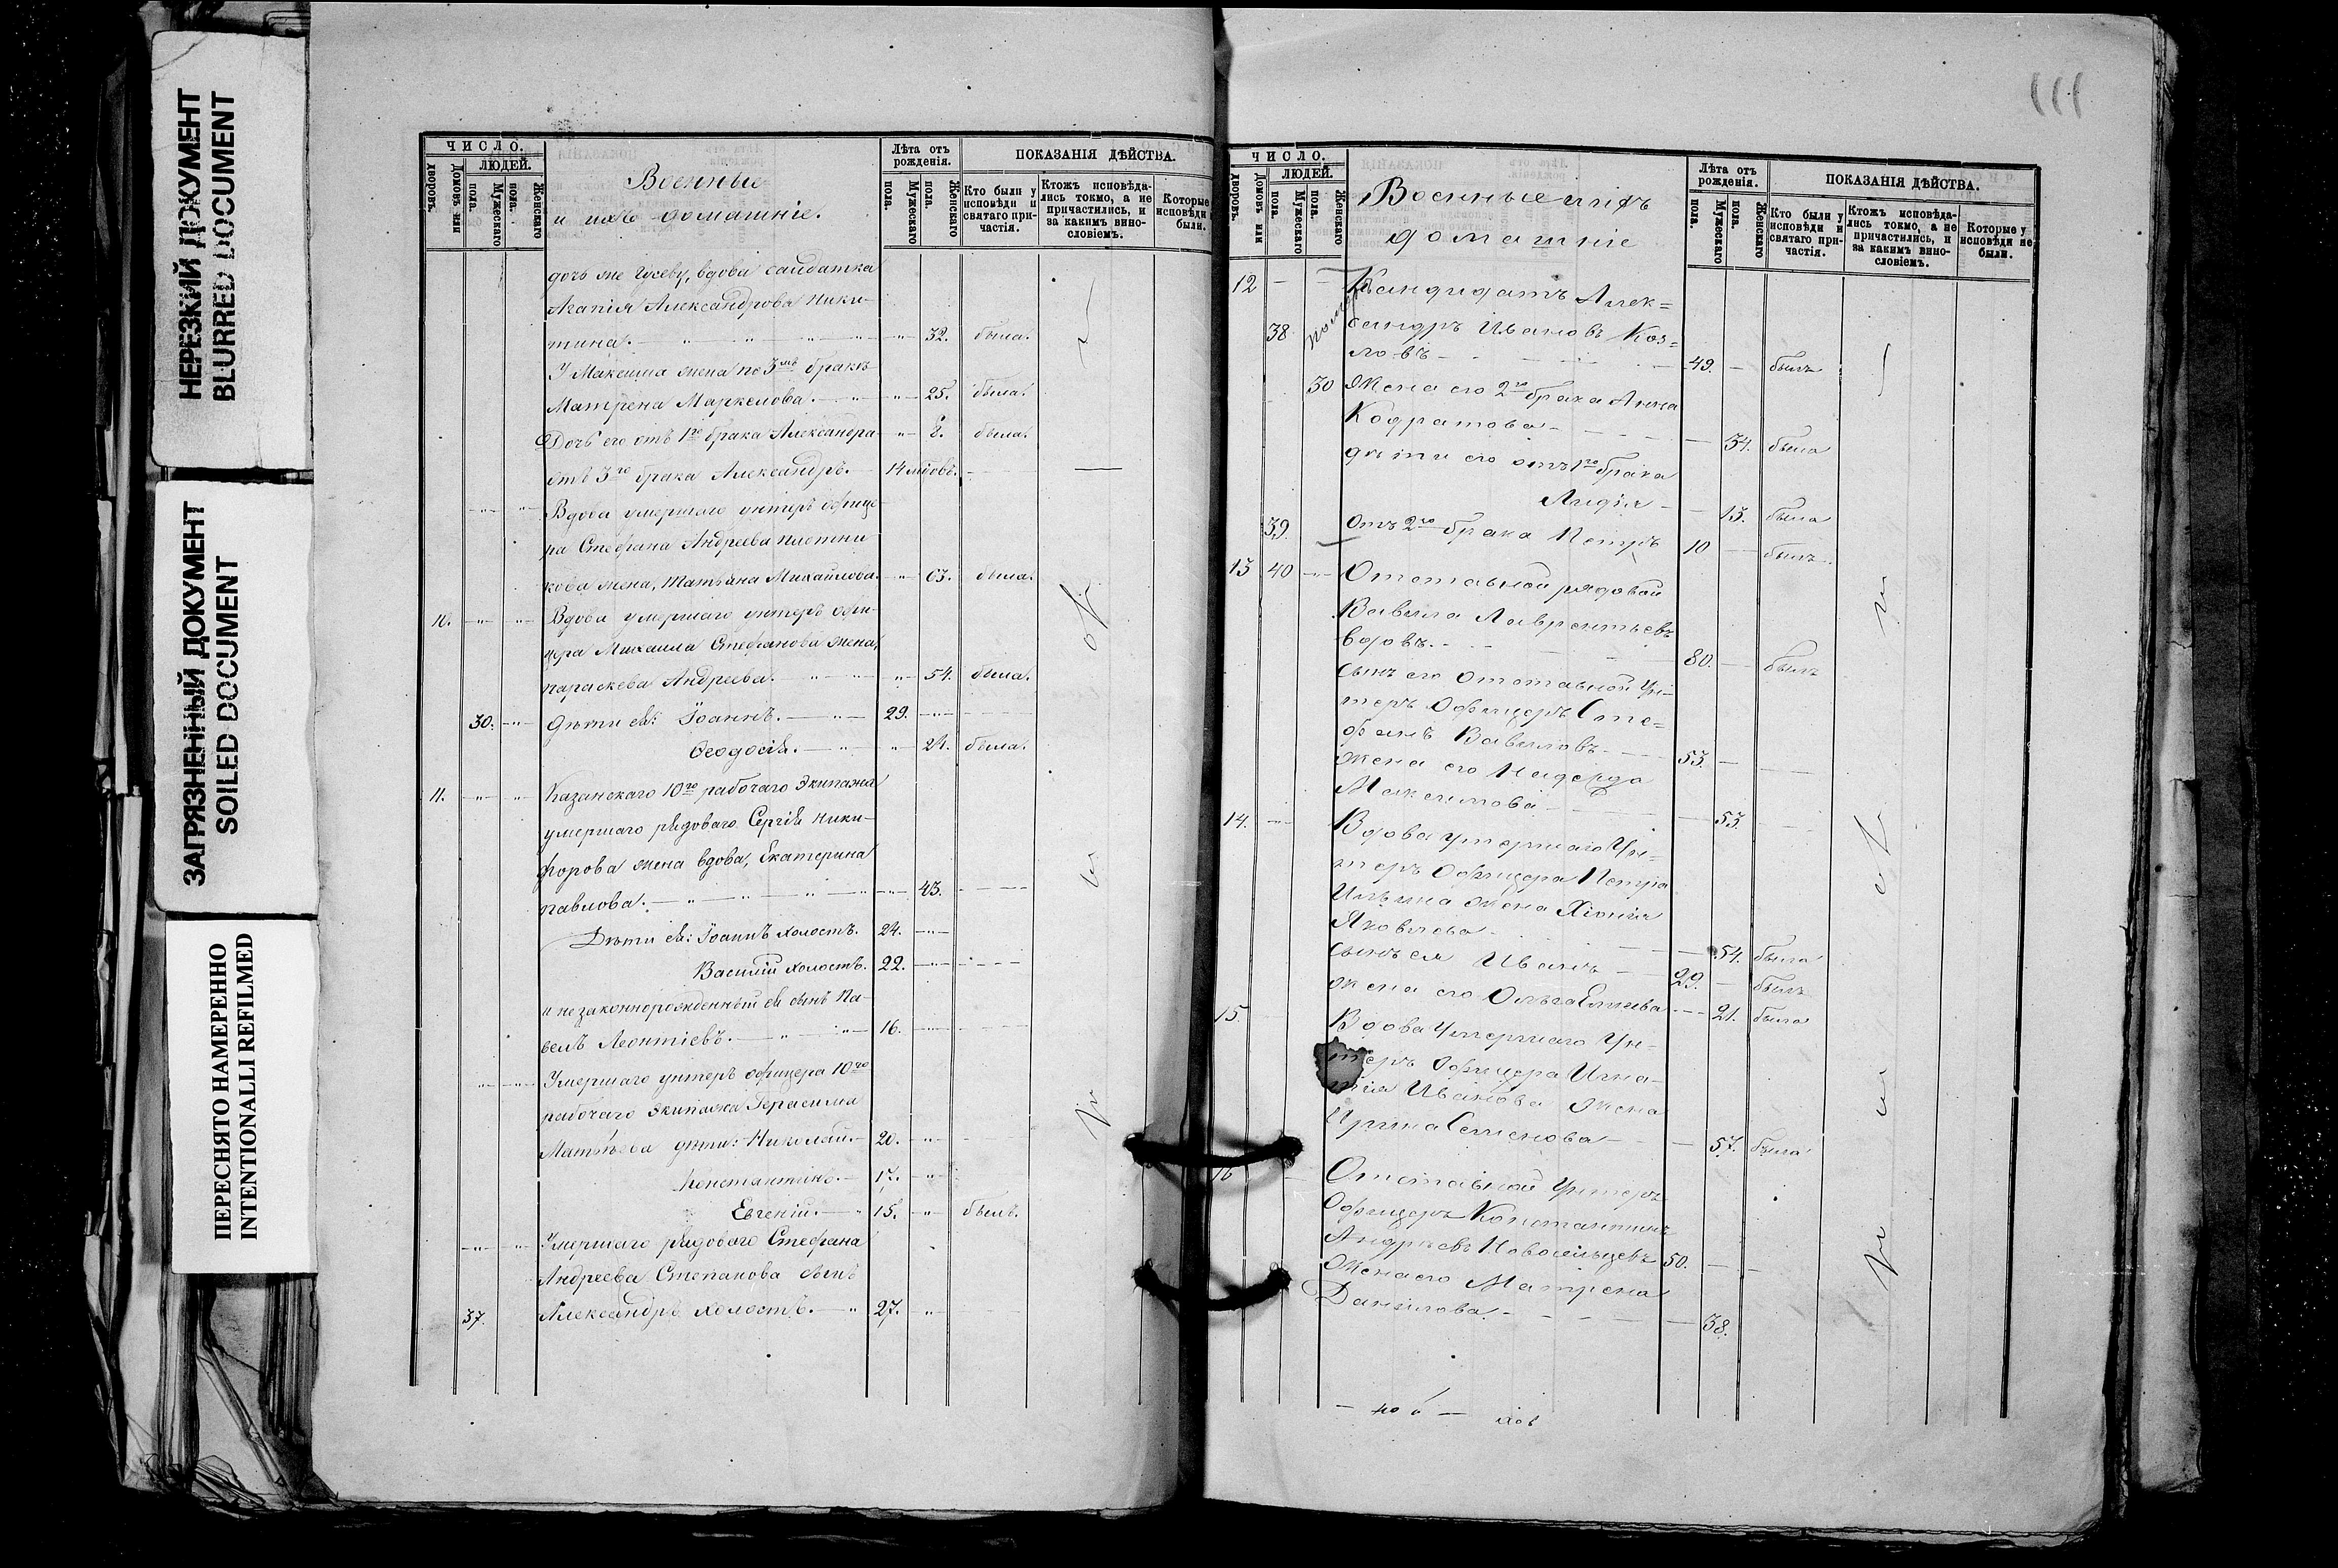 НЕРЕЗКИЙ ДОКУМЕНТ
BLURRED DOCUMENT
ЗАГРЯЗНЕННЫЙ ДОКУМЕНТ
SOILED DOCUMENT
ПЕРЕСНЯТО НАМЕРЕННО
INTENTIONALLI REFILMED
ЧИСЛО.
ЛЮДЕЙ.
Домовъ или дворовъ.
Мужескаго пола.
Женскаго пола.
Военные
и ихъ домашніе.
Лѣта отъ рожденія.
Мужескаго пола.
Женскаго пола.
ПОКАЗАНІЯ ДѢЙСТВА.
Кто были у исповѣди и святаго причастія.
Ктожъ исповѣдались токмо, а не причастились, и за какимъ винословіемъ.
Которые исповѣди были.
дочь же вдова салдатка
Агапія Александрова Ники-
тина. 32. была.
У Максима жена по 3мъ бракѣ
Матрена Маркелова. 25. была.
Дочь его отъ 1го брака Александра 8. была.
отъ 3го брака Александръ. 14 мѣсовъ.
Вдова умершаго унтеръ офице-
ра Стефана Андреева Плотни
кова жена, Татьяна Михайлова. 63. была.
10. Вдова умершаго унтеръ офи-
цера Михаила Стефанова жена,
Параскева Андреева. 54. была.
30. Дѣти ея: Іоаннъ. 29.
Ѳеодосія. 24. была.
11. Казанскаго 10го рабочаго Экипажа
умершаго рядоваго Сергія Ники-
форова жена вдова, Екатерина
Павлова. 43.
Дѣти ея: Іоаннъ холостъ. 24.
Василій холостъ. 22.
и незаконнорожденный ея сынъ Па-
велъ Леонтіевъ. 16.
Умершаго унтеръ офицера 10го
рабочаго Экипажа Герасима
Матвѣева дѣти: Николай. 20.
Константинъ. 17.
Евгеній. 15. былъ.
Умершаго рядоваго Стефана
Андреева Степанова сынъ
37. Александръ холостъ. 27.
111
ЧИСЛО.
ЛЮДЕЙ.
Домовъ или дворовъ.
Мужескаго пола.
Женскаго пола.
Военные и ихъ
домашніе
Лѣта отъ рожденія.
Мужескаго пола.
Женскаго пола.
ПОКАЗАНІЯ ДѢЙСТВА.
Кто были у исповѣди и святаго причастія.
Ктожъ исповѣдались токмо, а не причастились, и за какимъ винословіемъ.
Которые у исповѣди не были.
12 Кандидатъ Алек=
38. сандръ Ивановъ Коз=
ловъ 49. былъ
30 Жена его 2го брака Анна
Кодратова 34. была
дѣти его отъ 1го брака
Лидія 13. была
39. отъ 2го брака Петръ 10 былъ.
13 40 Отставной рядовой
Вавила Лаврентьевъ
вдовъ. 80. былъ
сынъ его Отставной Ун-
теръ Офицеръ Сте=
фанъ Вавиловъ 53.
жена его Надежда
Максимова 53.
14. Вдова умершаго Ун-
теръ Офицера Петра
Ильина жена Хіонія
Яковлева 54. была
сынъ ея Иванъ 29. былъ
жена его Ольга 21. была
15. Вдова Умершаго Ун-
теръ Офицера Игна-
тія Иванова жена
Ирина Семенова 57. была
16 Отставной Унтеръ
Офицеръ Константинъ
Андреевъ Новосельцевъ 50.
Жена его Матрена
Данилова 38.